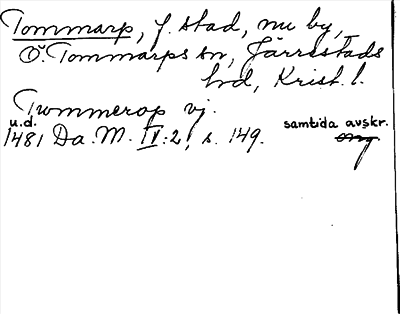 Tommarp, f. stad, nu by,
Ö. Tommarps sn, Järrestads
hd, Krist. l.
Twmmerop vj.
u.d. samtida avskr.
1481 Da. M. IV:2, s. 149.